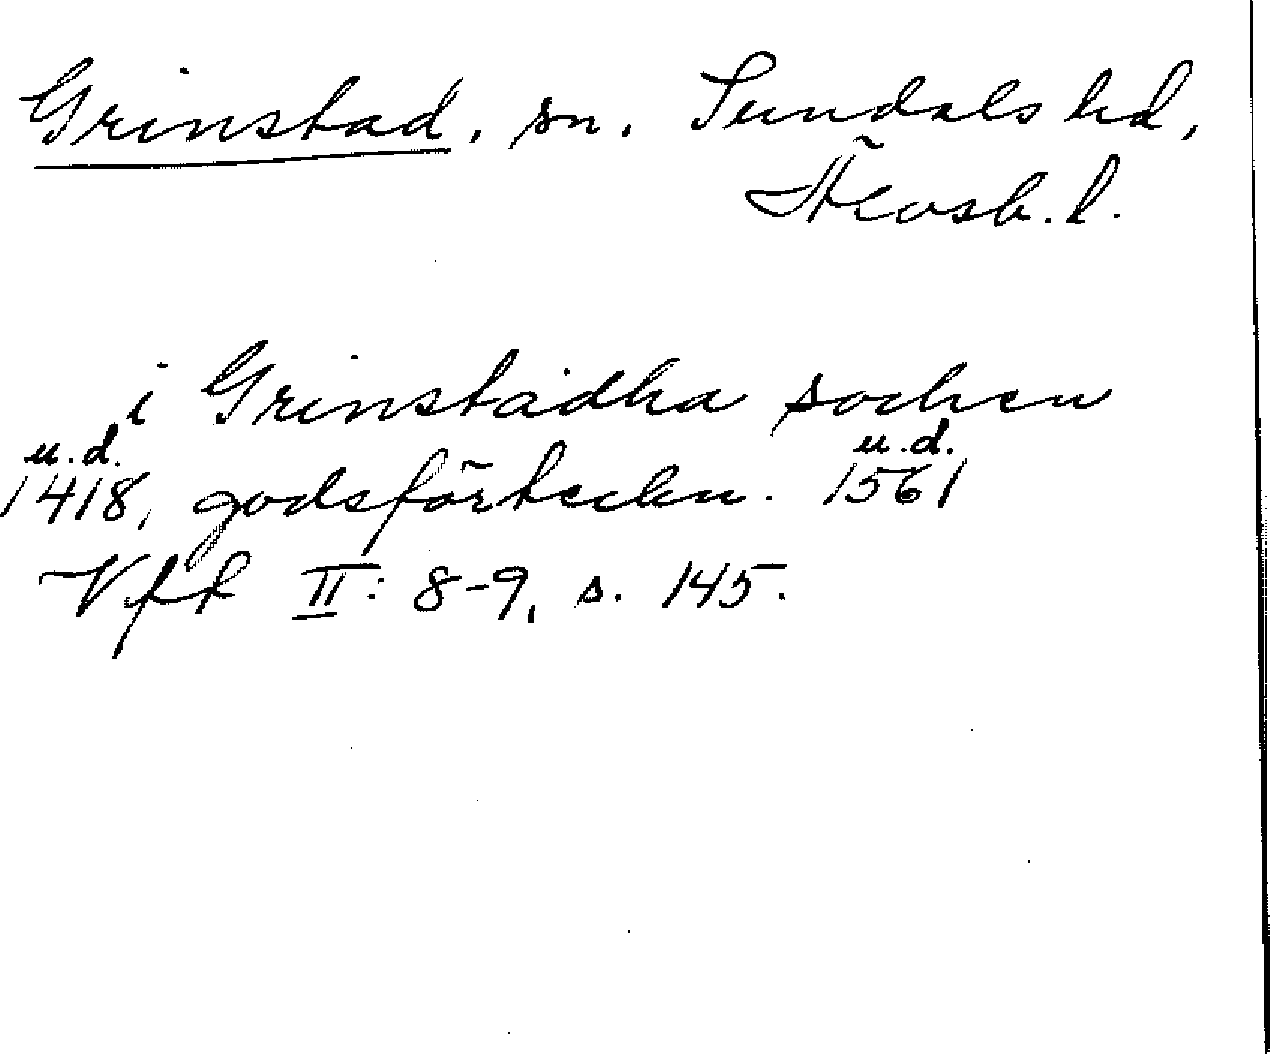 Grinstad, sn, Sundals hd,
Älvsb. l.
i Grinstadha sochen
u.d. u.d.
1418, godsförteckn. 1561
Vfr II: 8-9, s. 145.